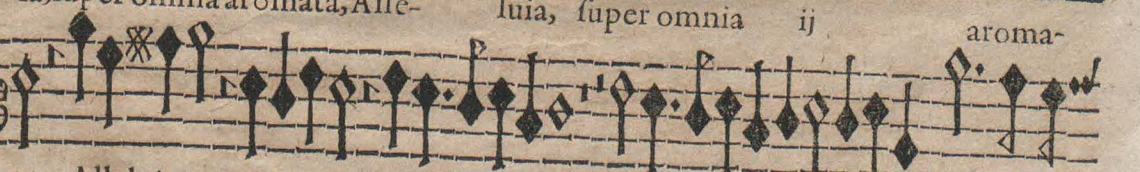 super omnia aromata, Alle- luia, super omnia ij aroma-